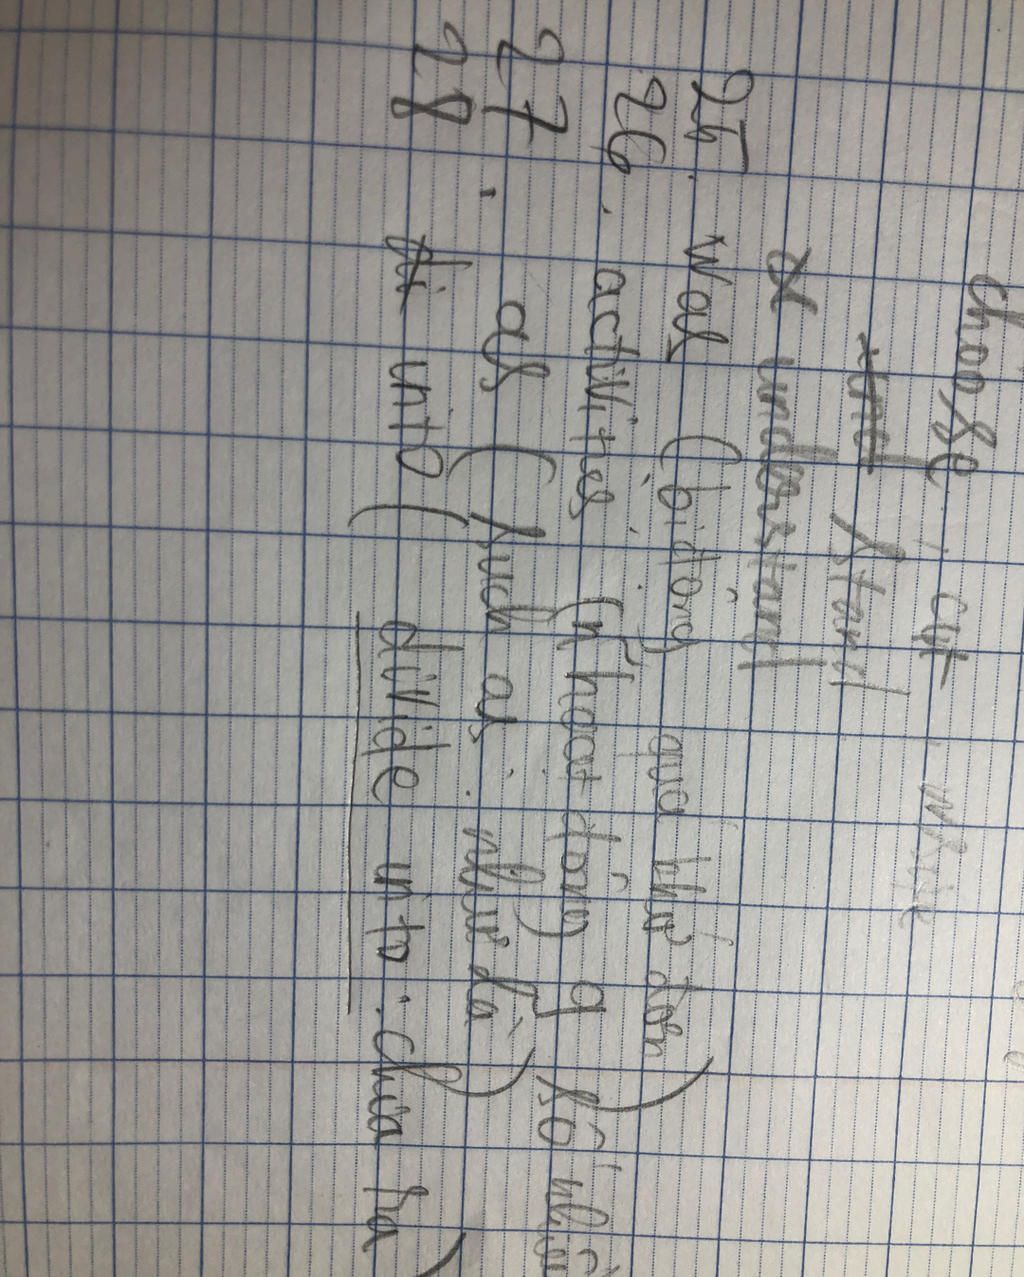 choose cut write
stand
understand
25. was (bị động quá khứ đơn)
26. activities (n hoạt động g số nhiều
27. as (such as : như là)
28 into (divide into : chia ra)